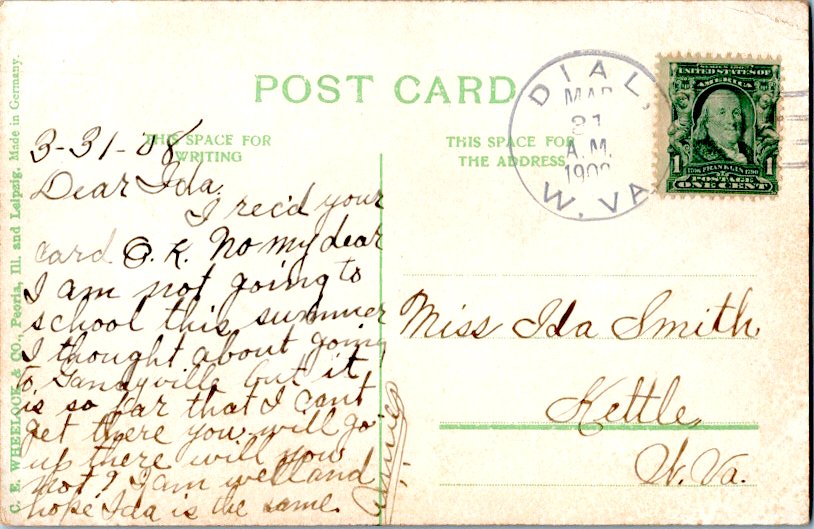 POST CARD
THIS SPACE FOR
WRITING
THIS SPACE FOR
THE ADDRESS
DIAL,
MAR
31
A.M.
1908
W. VA.
SERIES 1902
UNITED STATES OF
AMERICA
1 1
1706 FRANKLIN 1790
POSTAGE
ONE CENT
3-31-'08
Dear Ida.
I rec'd your
card O.K. No my dear
I am not going to
school this summer
I thought about going
to Gandyville but it
is so far that I cant
get there you will go
up there will you
not? I am well and
hope Ida is the same.
Miss Ida Smith
Kettle,
W. Va.
C. E. WHEELOCK & CO., Peoria, Ill. and Leipzig. Made in Germany.